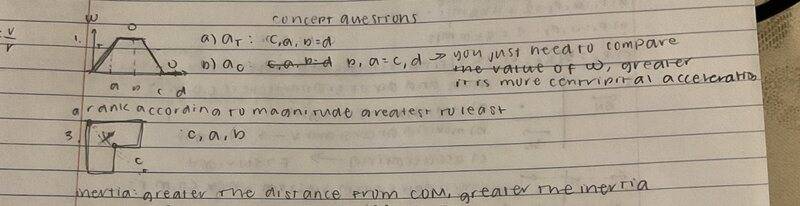 concept questions
= v/r
w
1.
a) aT: c, a, b=d
b) ac: c, a, b=d b, a=c, d → you just need to compare
the value of ω, greater
it is more centripiral acceleration
a b c d
a rank according to magnitude greatest to least
3. c, a, b
c
inertia: greater the distance from COM, greater the inertia